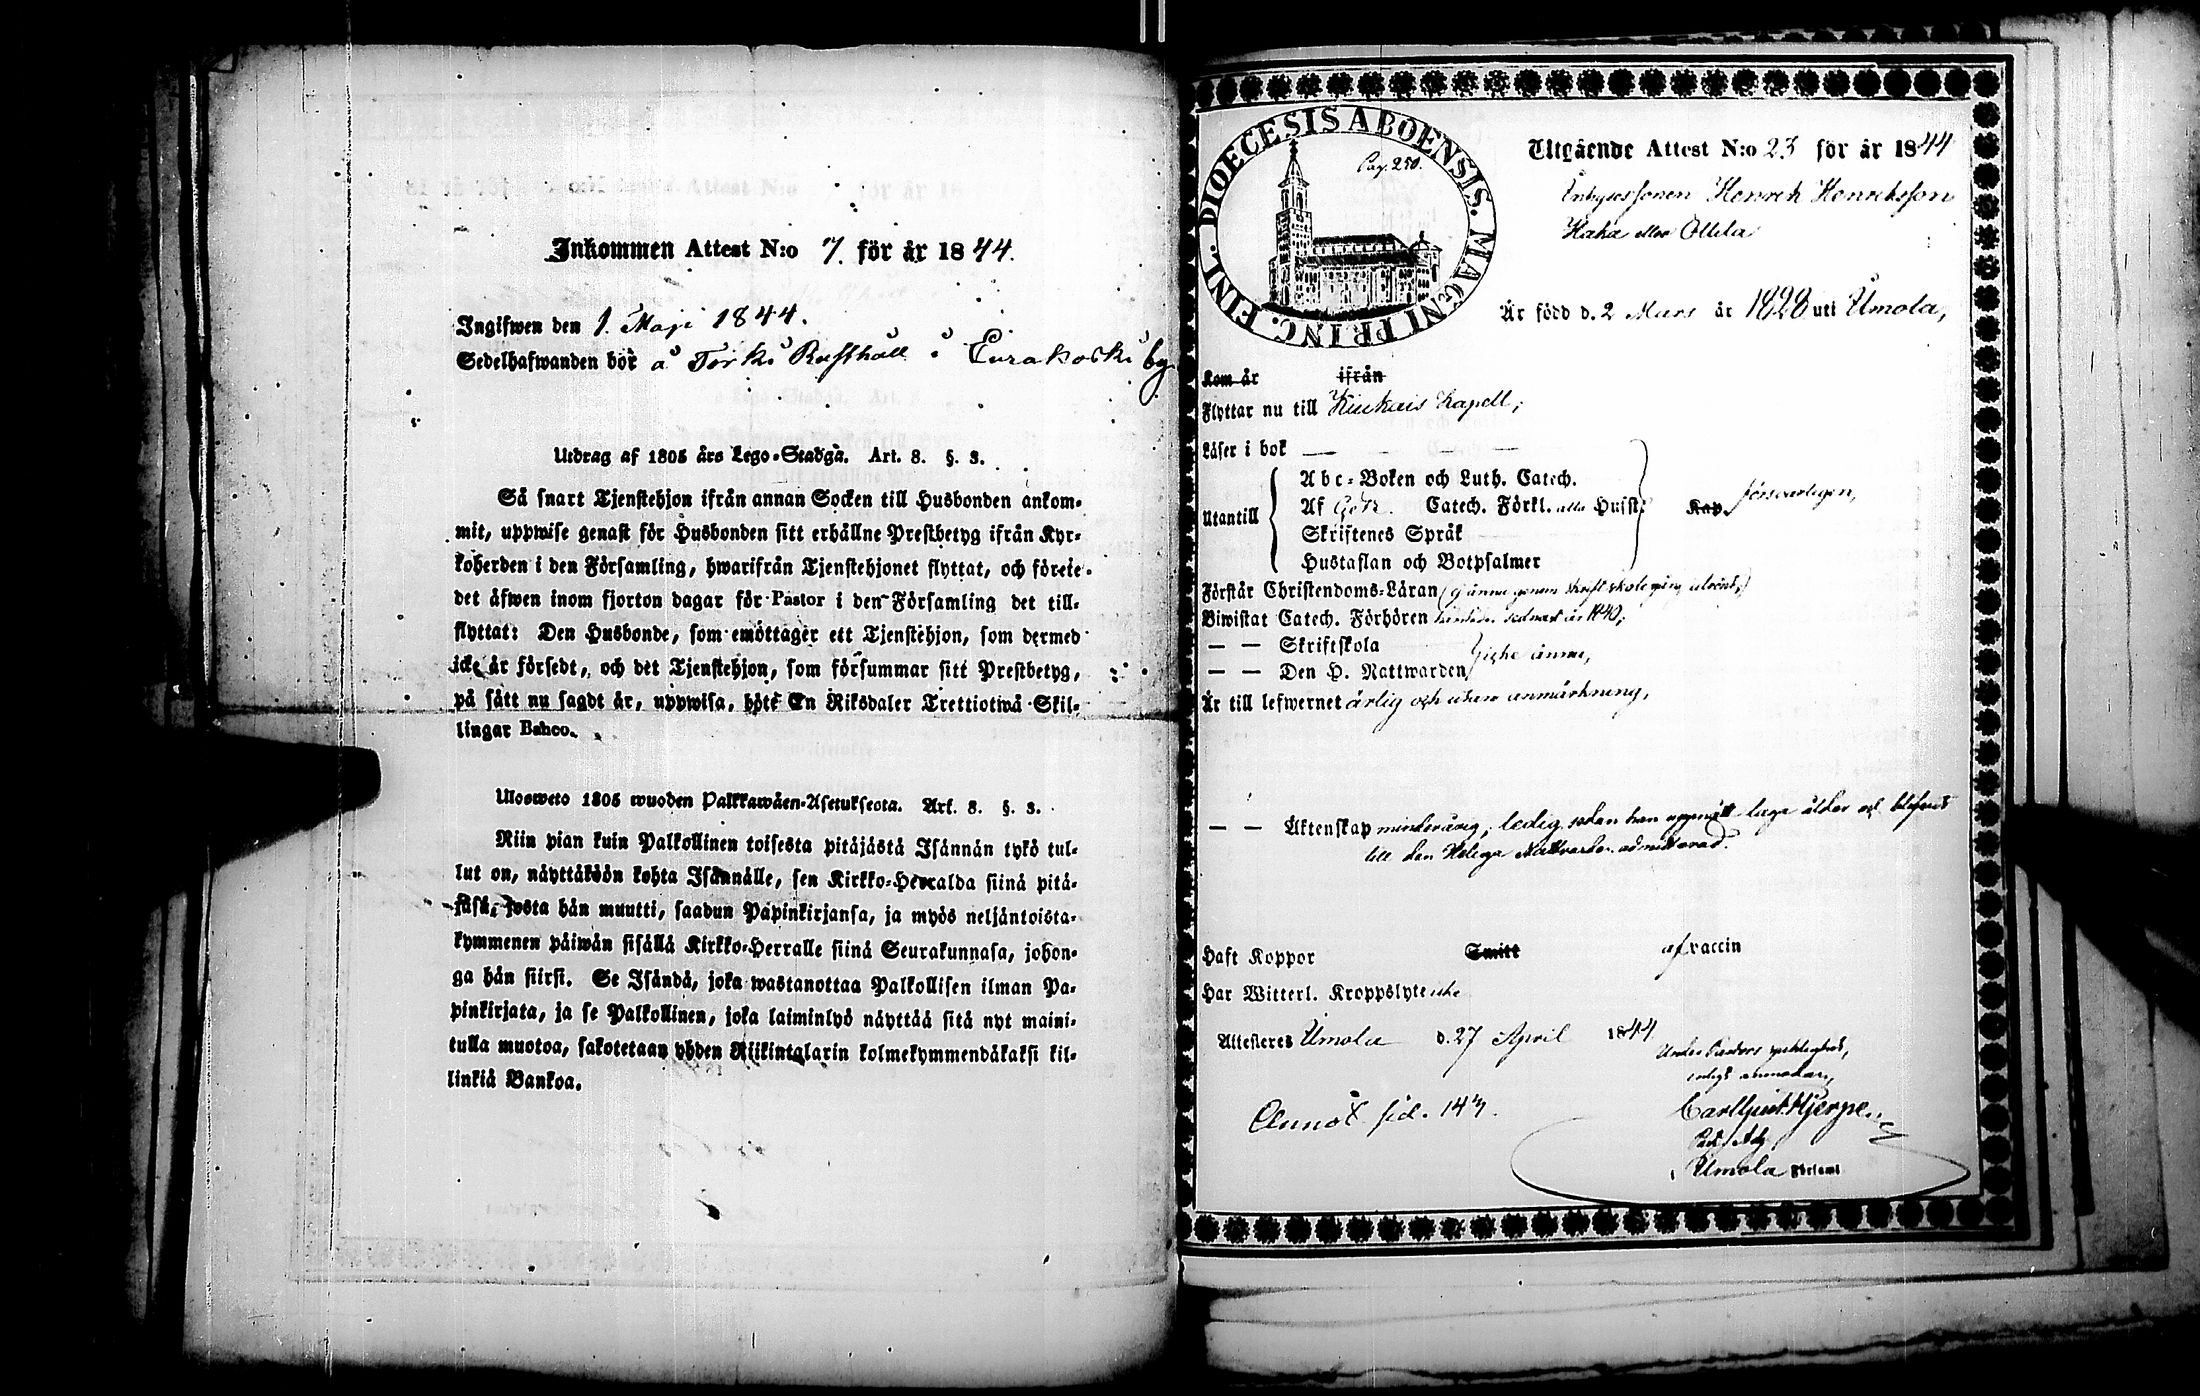 Inkommen Attest N:o 7. för år 1844.
Ingifwen den 1. Maji 1844.
Sedelhafwanden bor å Törki Rusthåll i Eurakoski by
Utdrag af 1805 års Lego-Stadga. Art. 8. §. 3.
Så snart Tjenstehjon ifrån annan Socken till Husbonden ankom-
mit, uppwise genast för Husbonden sitt erhållne Prestbetyg ifrån Kyr-
koherden i den Församling, hwarifrån Tjenstehjonet flyttat, och föreie
det äfwen inom fjorton dagar för Pastor i den Församling det till-
flyttat: Den Husbonde, som emottager ett Tjenstehjon, som dermed
icke är försedt, och det Tjenstehjon, som försummar sitt Prestbetyg,
på sätt nu sagdt är, uppwisa, böte En Riksdaler Trettiotwå Skil-
lingar Banco.
Ulosweto 1805 wuoden Palkkawäen-Asetuksesta. Art. 8. §. 3.
Niin pian kuin Palkollinen toisesta pitäjästä Isännän tykö tul-
lut on, näyttäköön kohta Isännälle, sen Kirkko-Herralda siinä pitä-
jäsä, josta hän muutti, saadun Papinkirjansa, ja myös neljäntoista-
kymmenen päiwän sisällä Kirkko-Herralle siinä Seurakunnasa, johon-
ga hän siirsi. Se Isändä, joka wastanottaa Palkollisen ilman Pa-
pinkirjata, ja se Palkollinen, joka laiminlyö näyttää sitä nyt maini-
tulla muotoa, sakotetaan yhden Riikintalarin kolmekymmendäkaksi kil-
linkiä Bankoa.
DIOECESIS ABOENSIS. MAGNI PRINC. FINL.
Pag. 250.
Utgående Attest N:o 23 för år 1844
Henrich Henriksson
Haka eller Ollila
Är född d. 2 Mars år 1828 uti Ulmola,
Kom år ifrån
Flyttar nu till Kiukais Kapell;
Läser i bok
Utantill
Abc-Boken och Luth. Catech.
Af Catech. Förkl. Husst.
Kap. försvarligen,
Skriftenes Språk
Hustaflan och Botpsalmer
Förstår Christendoms-Läran
Biwistat Catech. Förhören sednast år 1840;
— — Skriftskola
— — Den H. Nattwarden icke ännu,
Är till lefwernet ärlig och utan anmärkning,
— — Äktenskap minderårig, ledig sedan han uppnått laga ålder och blifvit
till den Heliga Nattvarden admitterad.
Haft Koppor Smitt af vaccin
Har Witterl. Kroppslyte icke
Attesteres Ulmola d. 27 April 1844
Under Pastors
enligt anmodan,
Carl Hjerpe
Ulmola Församl
Annot. sid. 147.